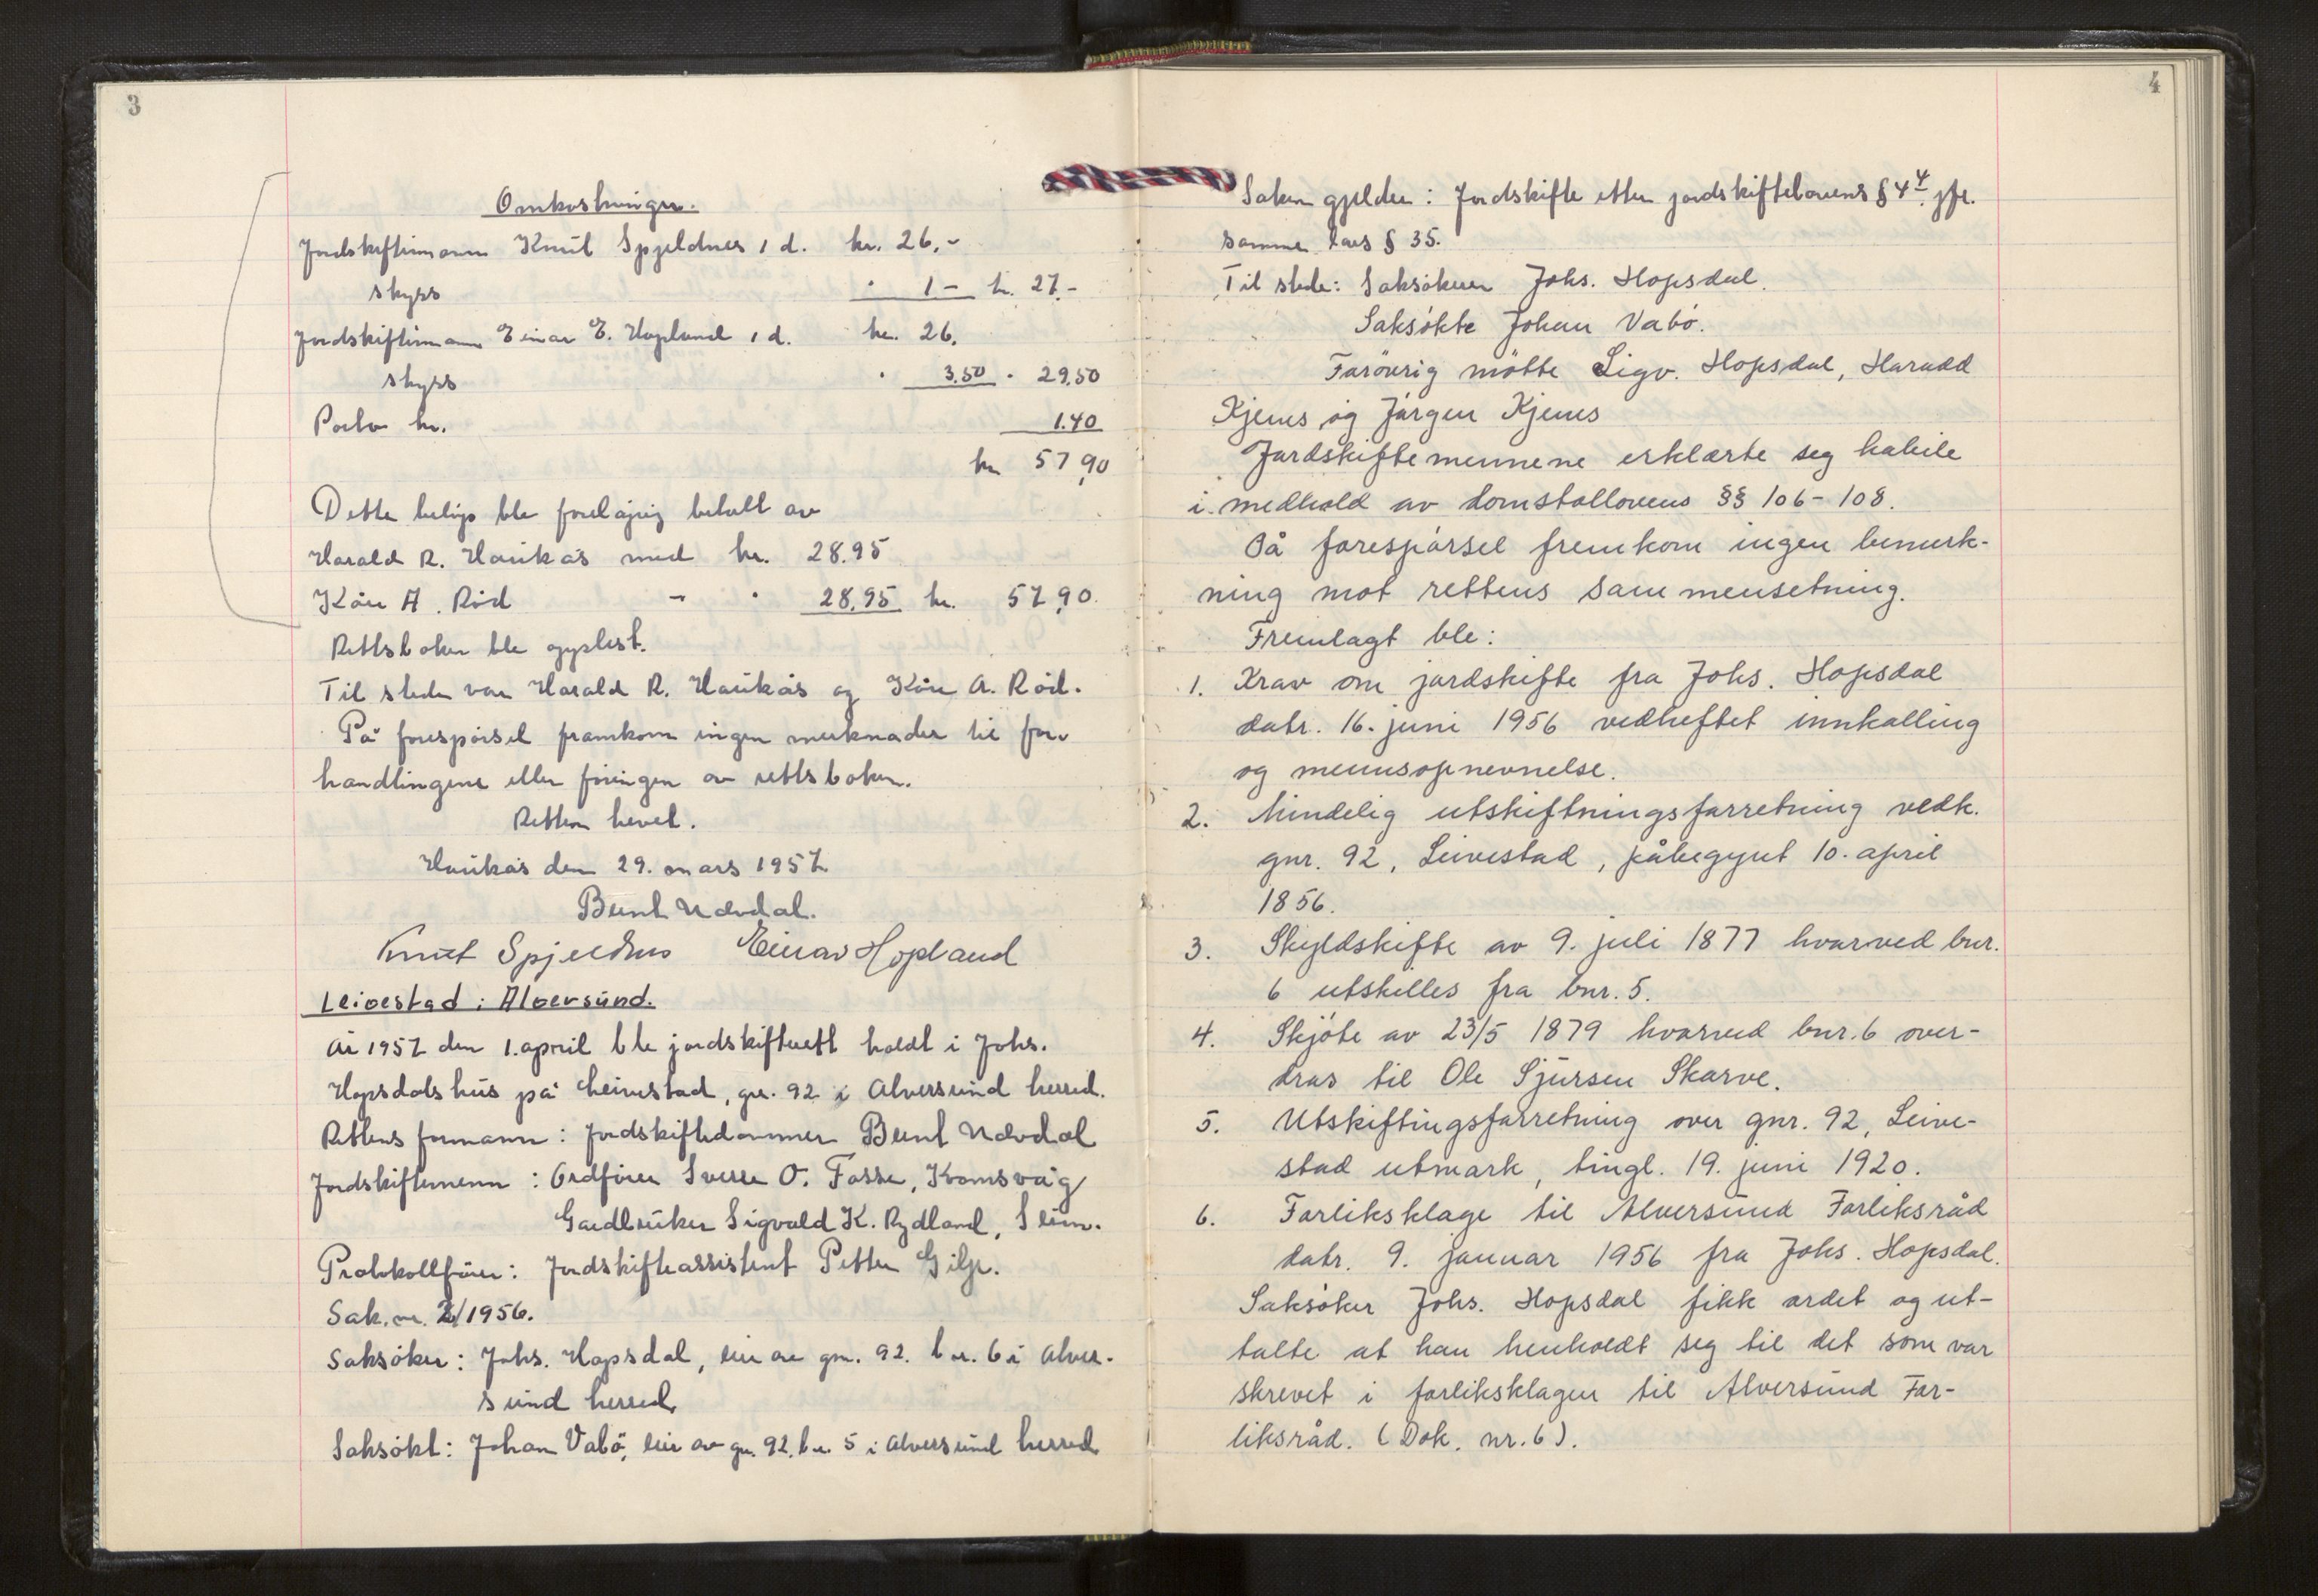 3
Omkostninger.
Jordskiftemann Knut Spjeldnes 1 d. kr. 26,-
skyss " 1- kr. 27,-
Jordskiftemann Einar E. Hopland 1 d. kr. 26,
skyss " 3.50 " 29,50
Porto kr. 1.40
kr 57,90
Dette beløp ble foreløpig betalt av
Harald R. Haukås med kr. 28.95
Kåre A. Röd - " 28.95 kr. 57,90
Rettsboken ble opplest.
Til stede var Harald R. Haukås og Kåre A. Röd.
På forespörsel framkom ingen merknader til for-
handlingene eller föringen av rettsboken.
Retten hevet.
Haukås den 29. mars 1957
Bernt Nævdal.
Knut Spjeldnes Einar Hopland
Leivestad i Alversund.
År 1957 den 1. april ble jordskifterett holdt i Johs.
Hopsdals hus på Leivestad, gnr. 92 i Alversund herred.
Rettens formann: Jordskiftedommer Bernt Nævdal
Jordskiftemenn: Ordförer Sverre O. Fosse, Kvamsvåg
Gardbruker Sigvald K. Rydland, Seim.
Protokollförer: Jordskifteassistent Petter Gilje.
Sak. nr. 2/1956.
Saksöker: Johs. Hopsdal, eier av gnr. 92. bnr. 6 i Alver-
sund herred.
Saksökt: Johan Vabö, eier av gnr. 92. bnr. 5 i Alversund herred
4
Saken gjelder: Jordskifte etter jordskiftelovens § 4 4. jfr.
samme lovs § 35.
Til stede: Saksökeren Johs. Hopsdal.
Saksökte Johan Vabö.
Foröurig mötte Sigv. Hopsdal, Harald
Kjenes og Jörgen Kjenes
Jordskiftemennene erklærte seg habile
i medhold av domstollovens §§ 106-108.
På forespörsel fremkom ingen bemerk-
ning mot rettens sammensetning.
Fremlagt ble:
1. Krav om jordskifte fra Johs. Hopsdal
datr. 16. juni 1956 vedheftet innkalling
og mennsopnevnelse.
2. Mindelig utskiftningsforretning vedk.
gnr. 92, Leivestad, påbegynt 10. april
1856.
3. Skyldskifte av 9. juli 1877 hvorved bnr.
6 utskilles fra bnr. 5.
4. Skjöte av 23/5 1879 hvorved bnr. 6 over-
dras til Ole Sjursen Skarve.
5. Utskiftingsforretning over gnr. 92, Leive-
stad utmark, tingl. 19. juni 1920.
6. Forliksklage til Alversund Forliksråd
datr. 9. januar 1956 fra Johs. Hopsdal.
Saksöker Johs. Hopsdal fikk ordet og ut-
talte at han henholdt seg til det som var
skrevet i forliksklagen til Alversund For-
liksråd. (Dok. nr. 6).